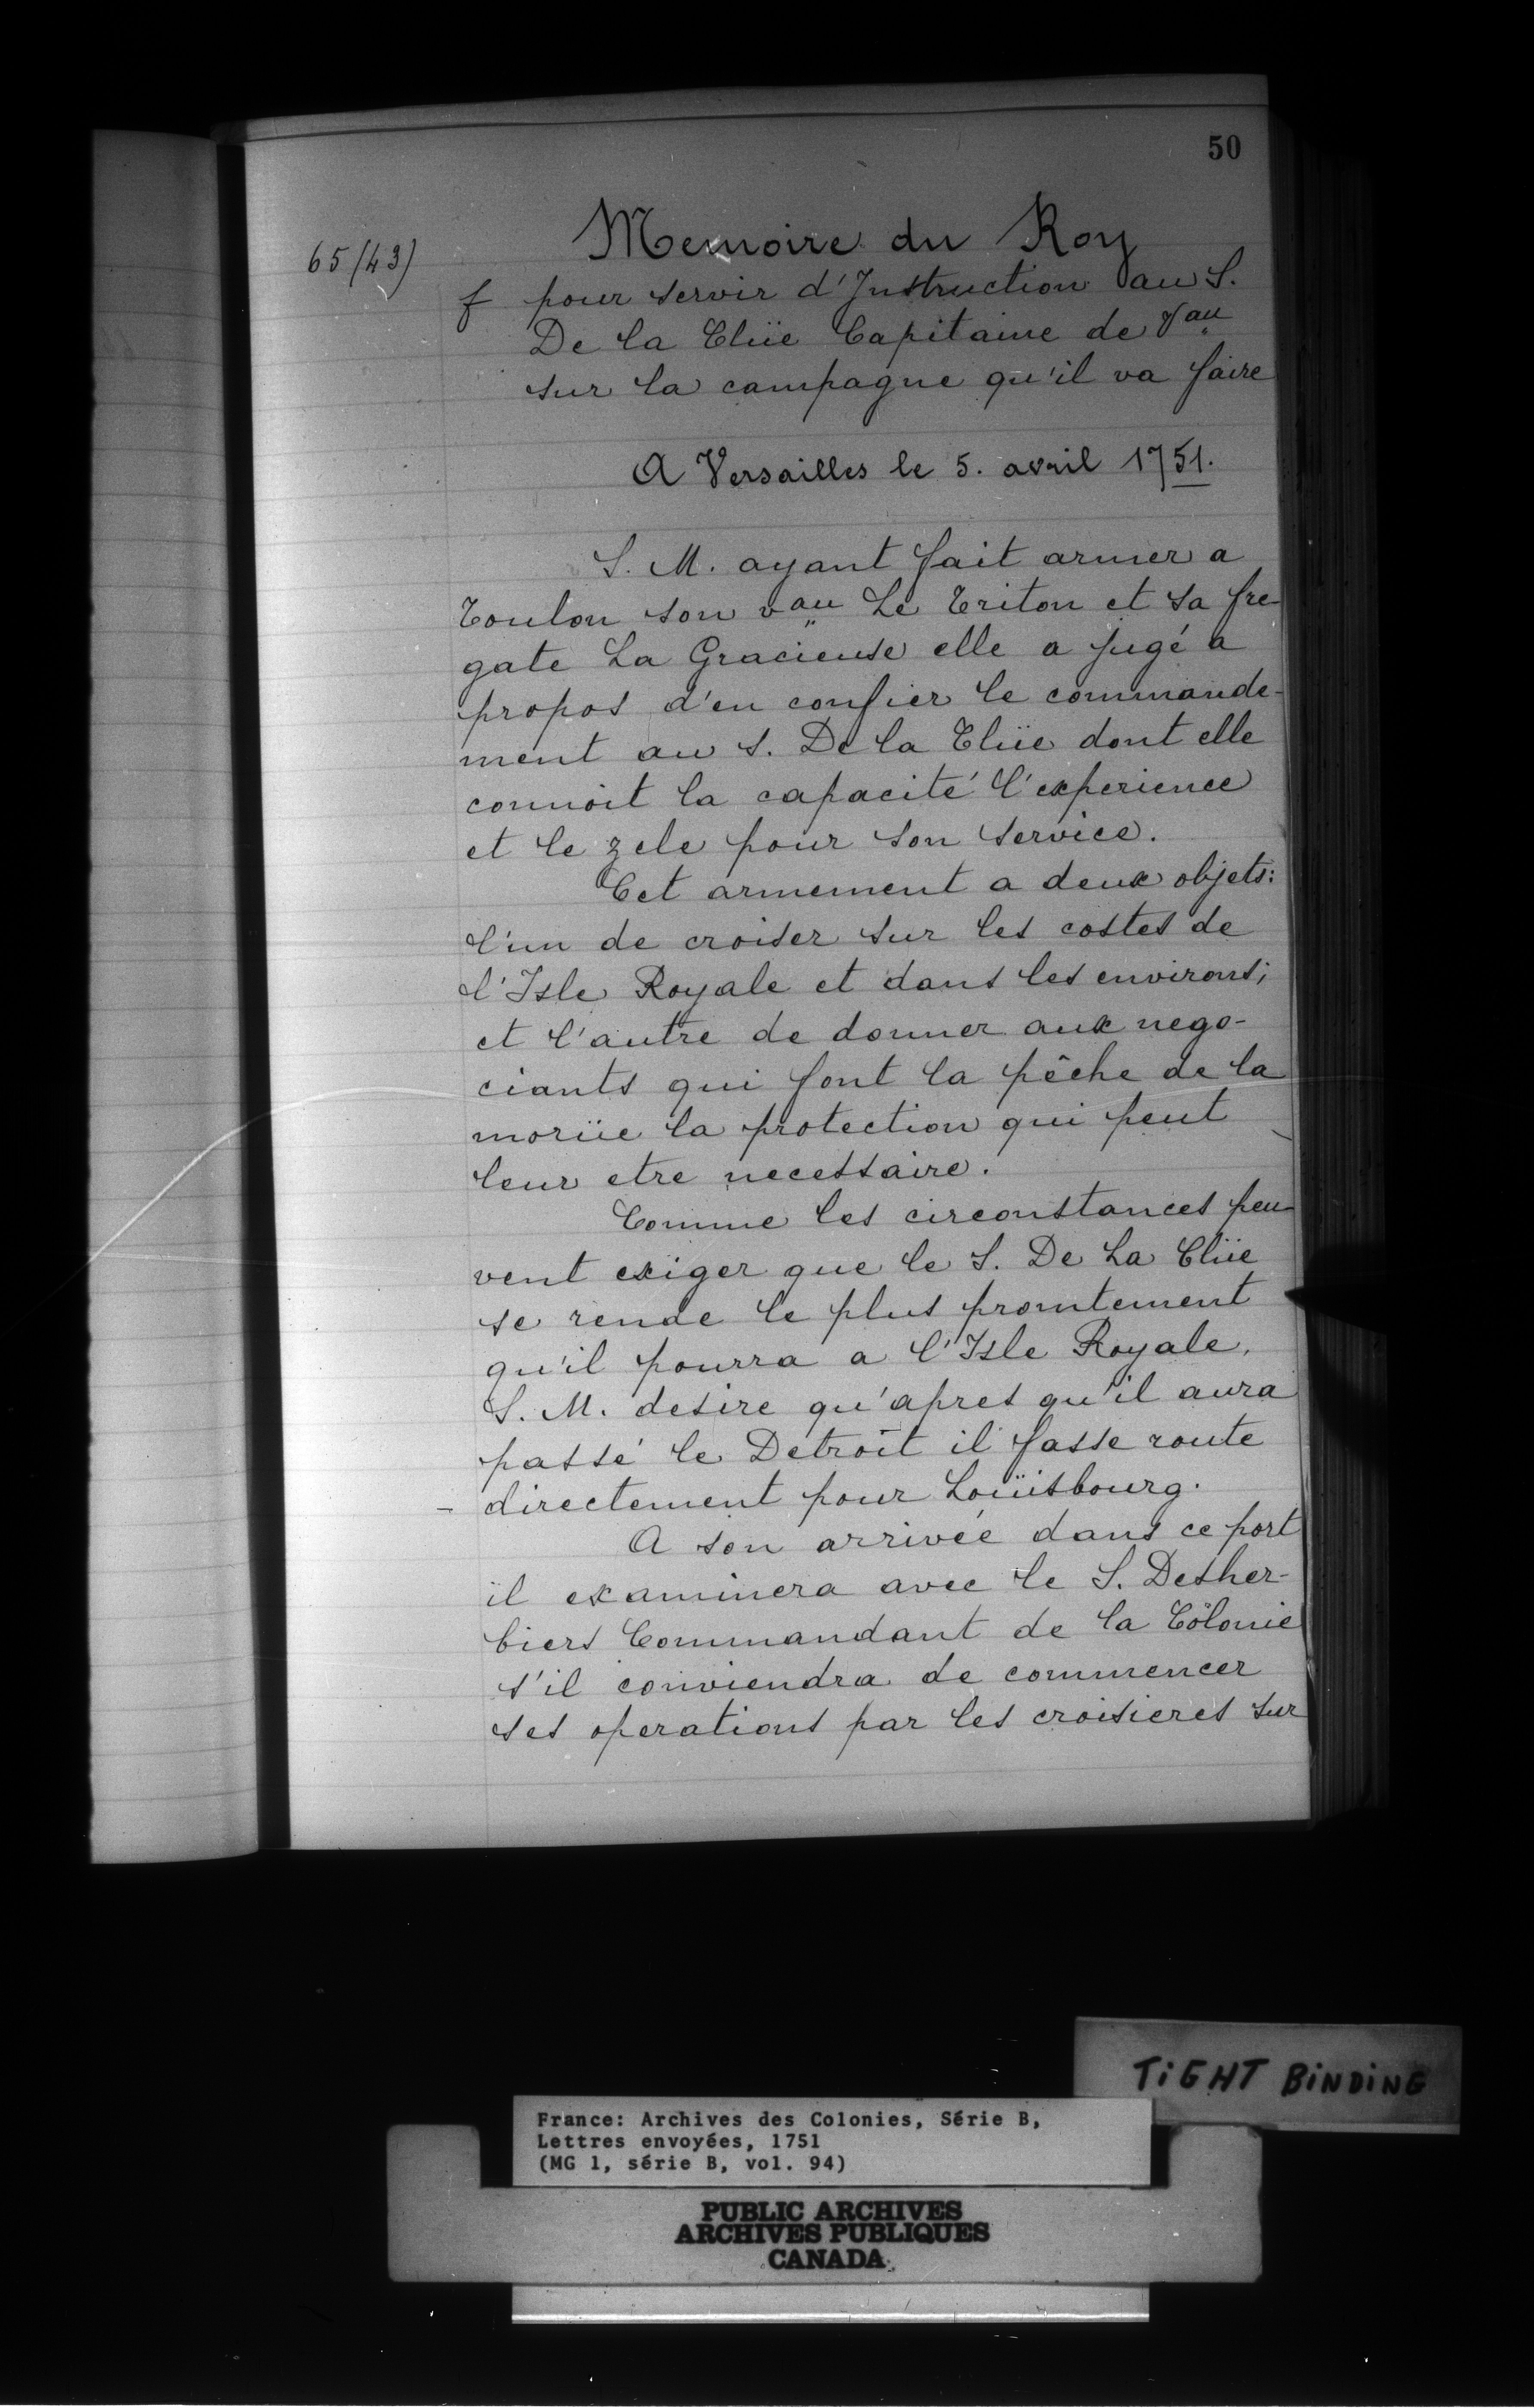 50
65 (43)
Memoire du Roy
f pour servir d'Instruction au S.
De la Clüe Capitaine de Vau
sur la campagne qu'il va faire
A Versailles le 5. avril 1751.
S. M. ayant fait armer a
Toulon son vau Le Triton et sa fre-
gate La Gracieuse elle a jugé a
propos d'en confier le commande-
ment au S. De la Clüe dont elle
connoit la capacité l'experience
et le zele pour son service.
Cet armement a deux objets:
l'un de croiser sur les costes de
l'Isle Royale et dans les environs;
et l'autre de donner aux nego-
ciants qui font la pêche de la
morüe la protection qui peut
leur etre necessaire.
Comme les circonstances peu-
vent exiger que le S. De La Clüe
se rende le plus promtement
qu'il pourra a l'Isle Royale,
S. M. desire qu'apres qu'il aura
passé le Detroit il fasse route
- directement pour Loüisbourg.
A son arrivée dans ce port
il examinera avec le S. Desher-
biers Commandant de la Colonie
s'il conviendra de commencer
ses operations par les croisieres sur
TIGHT BINDING
France: Archives des Colonies, Série B,
Lettres envoyées, 1751
(MG 1, série B, vol. 94)
PUBLIC ARCHIVES
ARCHIVES PUBLIQUES
CANADA